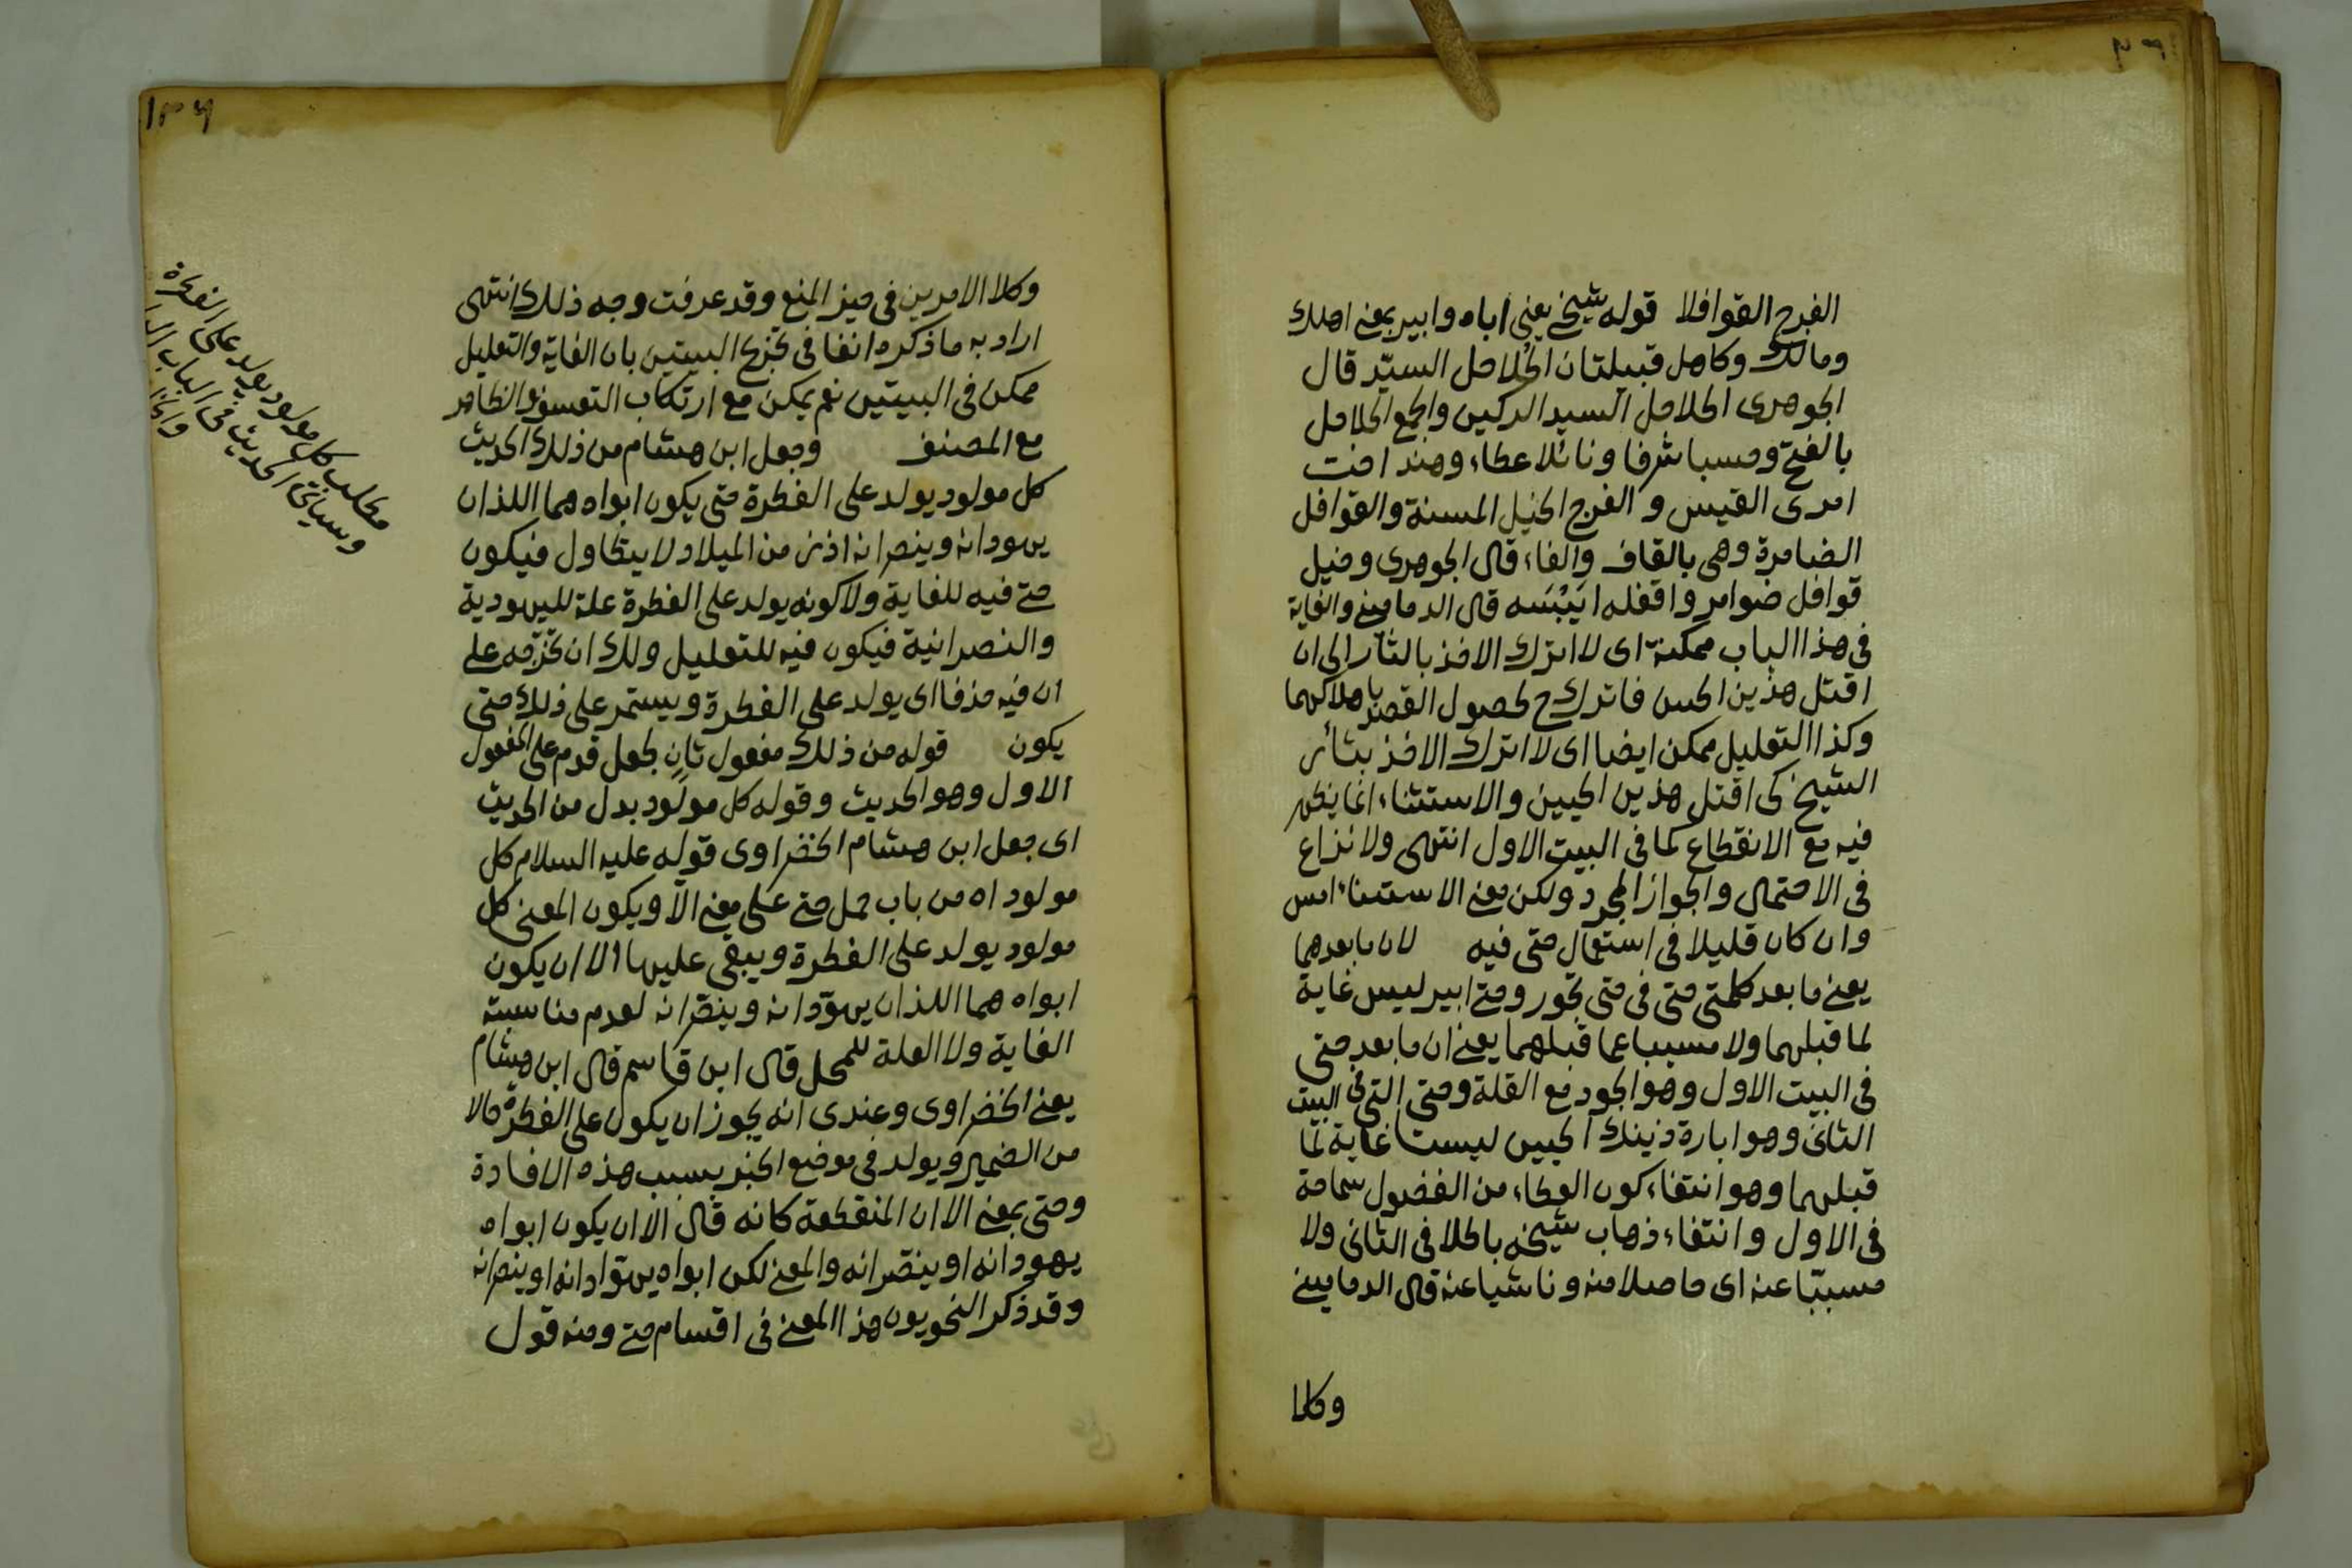 الفرح القوافلا قوله شيخي يعني اباه وابير بمعنى اهلك
ومالك وكاهل قبيلتان الحُلاحل السيّد قال
الجوهرى الحلاحل السيد الركين والجمع الحلاحل
بالفتح وحسبا شرفا ونائلا عطاء وهند اخت
امرى القيس والفرح الخيل المسنة والقوافل
الضامرة وهى بالقاف والفاء قال الجوهرى وخيل
قوافل ضوامر واقفله ايَبْسَه قال الدمامينى والغاية
فى هذا الباب ممكنة اى لا اترك الاخذ بالثار الى ان
اقتل هذين الحيين فاترك ح لحصول القصد باهلاكهما
وكذا التعليل ممكن ايضا اى لا اترك الاخذ بثأر
الشيخ كى اقتل هذين الحيين والاستثناء انما يظهر
فيه مع الانقطاع كما فى البيت الاول انتهى ولا نزاع
فى الاحتمال والجواز المجرد ولكن معنى الاستثناء امس
وان كان قليلا فى استعمال حتى فيه لان ما بعدهما
يعنى ما بعد كلمتى حتى فى حتى تجود وحتى ابير ليس غاية
لما قبلهما ولا مسببا عما قبلهما يعنى ان ما بعد حتى
فى البيت الاول وهو الجود مع القلة وحتى التى فى البيت
الثانى وهو ابارة ذينك الحيين ليست غاية لما
قبلهما وهو انتفاء كون العطاء من الفضول سماحة
فى الاول وانتفاء ذهاب شيخه باطلا فى الثانى ولا
مسببّا عنه اى حاصلا منه وناشيا عنه قال الدمامينى
وكلا
١٣٦
وكلا الامرين فى حيز المنع وقد عرفت وجه ذلك انتهى
اراد به ما ذكره انفا فى تخريج البيتين بان الغاية والتعليل
ممكن فى البيتين نعم يمكن مع ارتكاب التعسف والظاهر
مع المصنف وجعل ابن هشام من ذلك الحديث
كل مولود يولد على الفطرة حتى يكون ابواه هما اللذان
يهودانه وينصرانه اذ زمن الميلاد لا يتطاول فيكون
حتى فيه للغاية ولا كونه يولد على الفطرة علة لليهودية
والنصرانية فيكون فيه للتعليل ولك ان تخرّجه على
ان فيه حذفا اى يولد على الفطرة ويستمر على ذلك حتى
يكون قوله من ذلك مفعول ثانٍ لجعل قدم على المفعول
الاول وهو الحديث وقوله كل مولود بدل من الحديث
اى جعل ابن هشام الخضراوى قوله عليه السلام كل
مولود اه من باب حمل حتى على معنى الّا ويكون المعنى كل
مولود يولد على الفطرة ويبقى عليها الا ان يكون
ابواه هما اللذان يهوّدانه وينصّرانه لعدم مناسبته
الغاية ولا العلة للمحل قال ابن قاسم قال ابن هشام
يعنى الخضراوى وعندى انه يجوز ان يكون على الفطرة حالا
من الضمير ويولد فى موضع الخبر بسبب هذه الافادة
وحتى بمعنى الا ان المنقطعة كانه قال الا ان يكون ابواه
يهودانه او ينصّرانه والمعنى لكن ابواه يهوّدانه او ينصرانه
وقد ذكر النحويون هذا المعنى فى اقسام حتى ومنه قول
مطلب كل مولود يولد على الفطرة
وسيأتى الحديث فى الباب